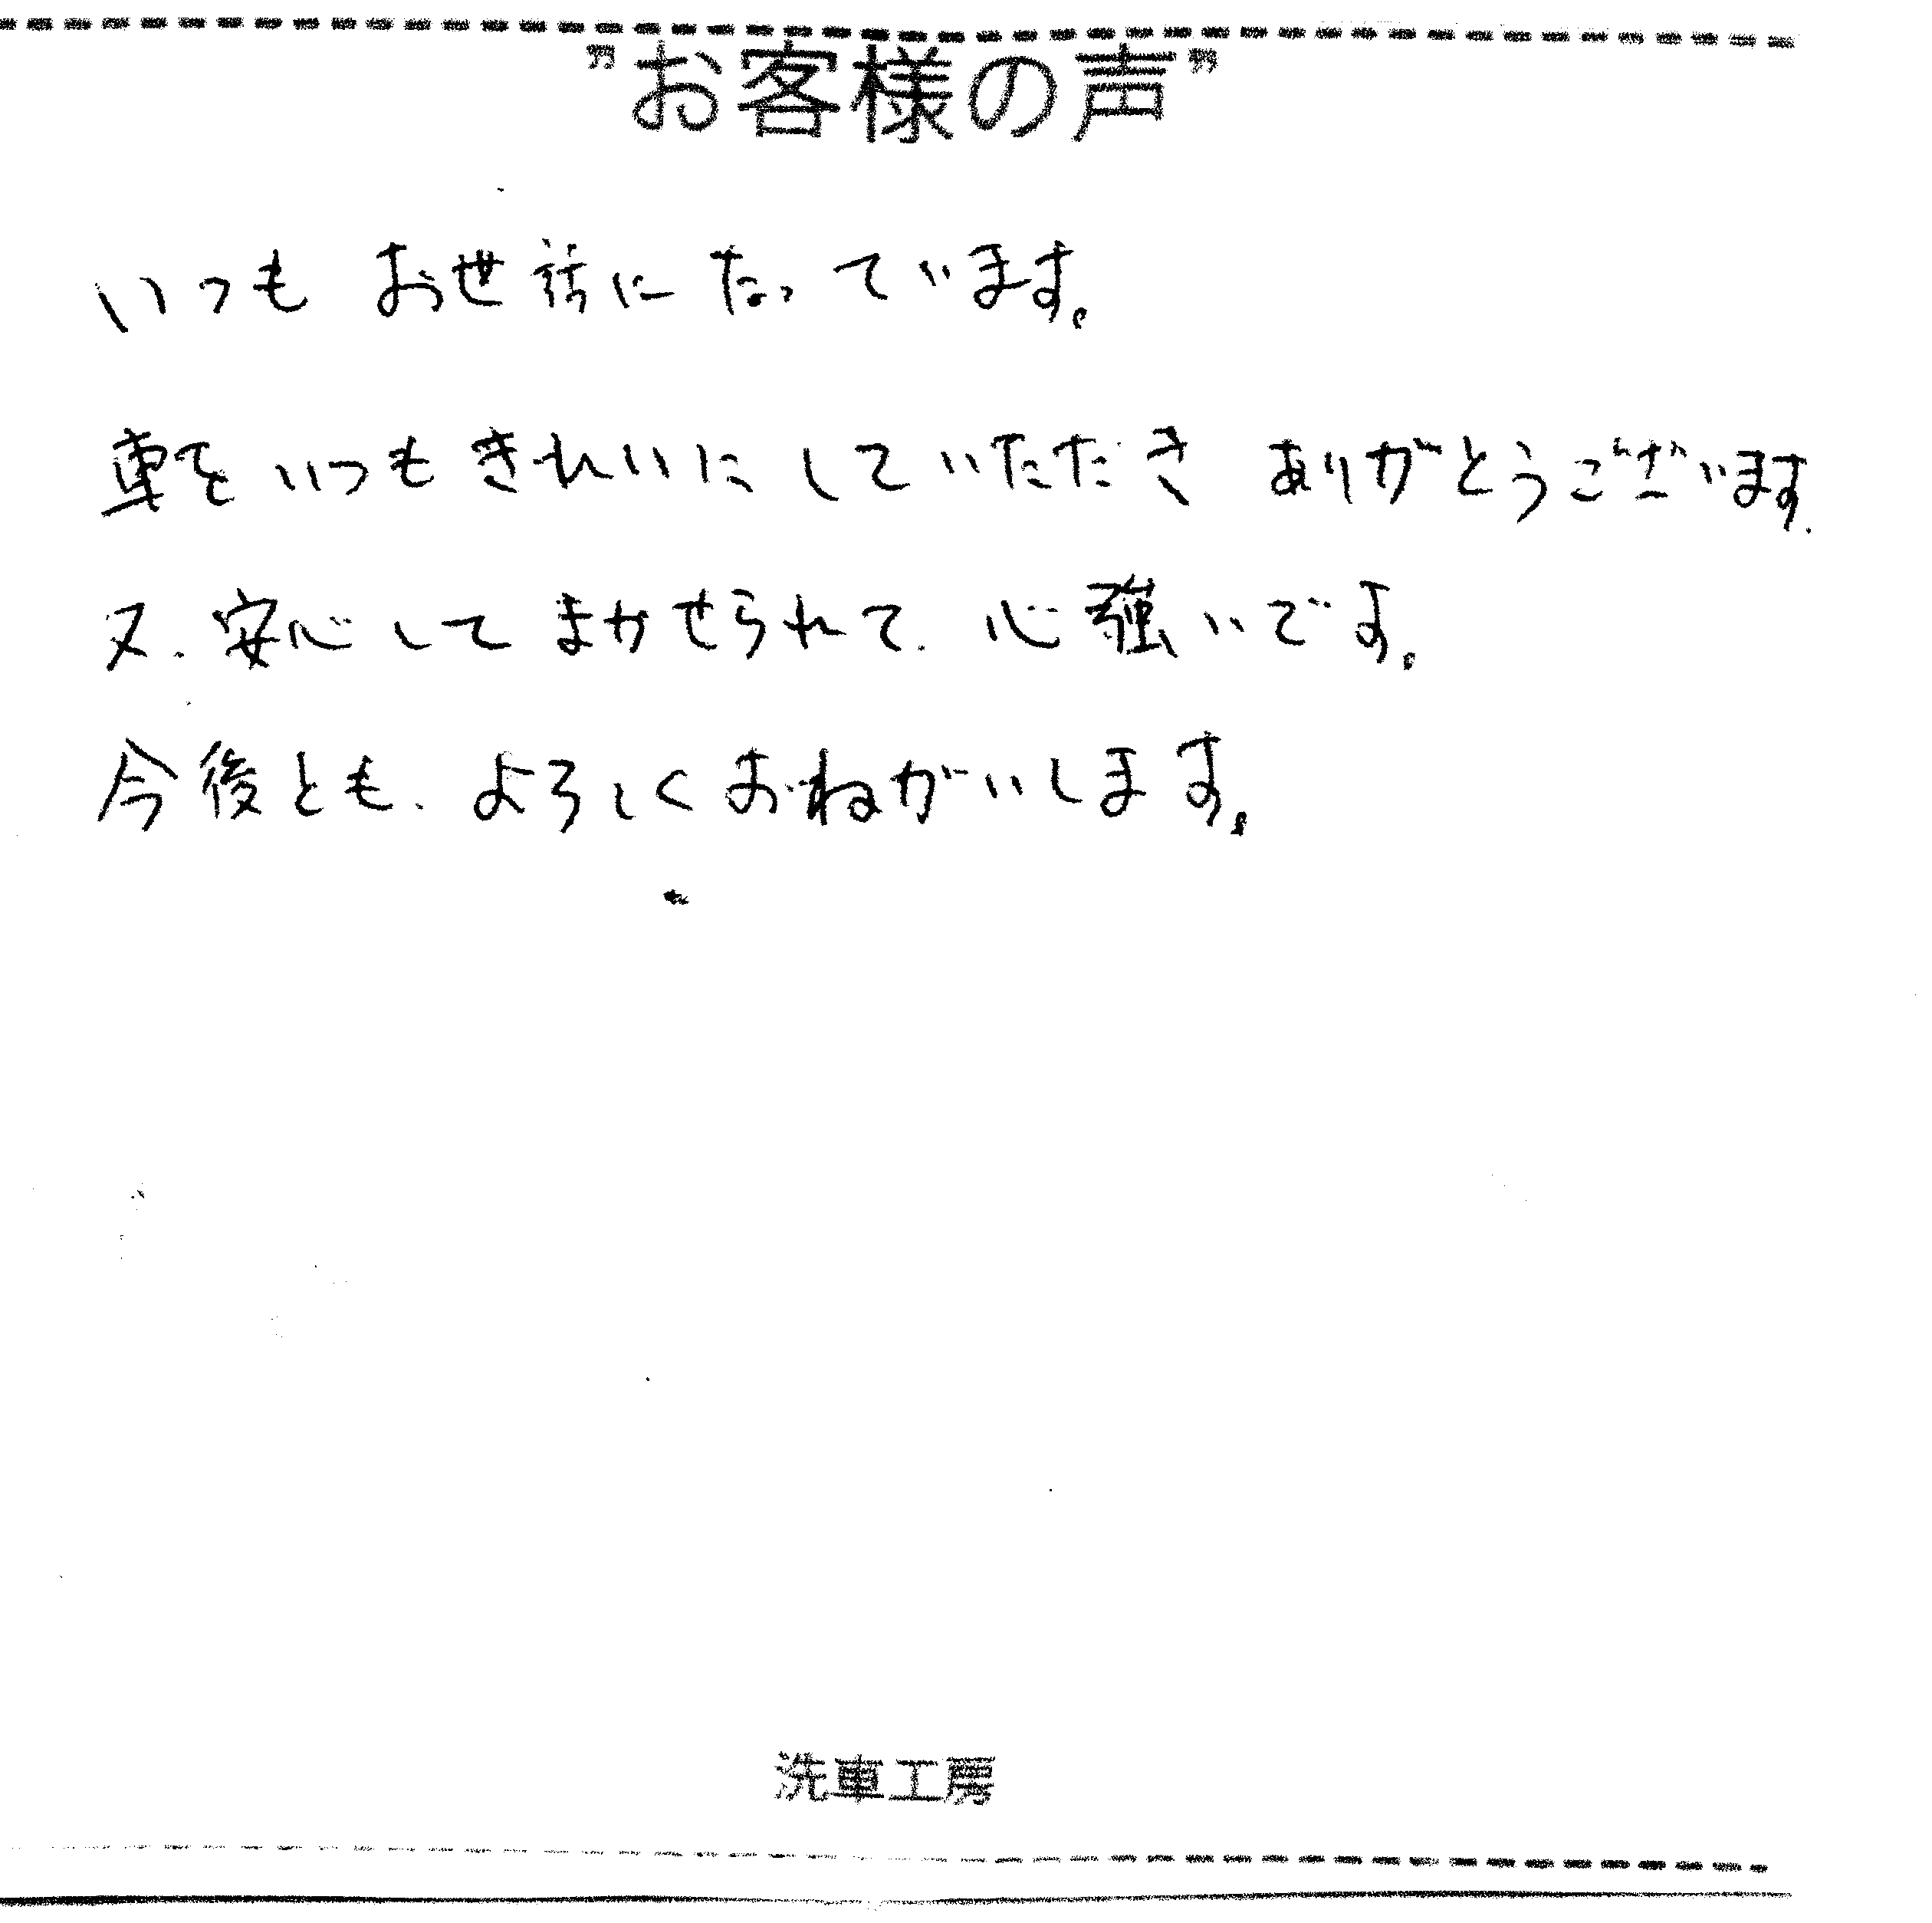 "お客様の声"
いつも お世話に なっています。
車を いつも きれいに していただき ありがとうございます.
又、安心して まかせられて、心強いです。
今後とも、よろしく おねがいします。
洗車工房